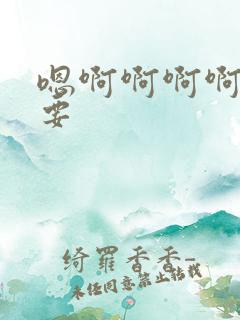 嗯啊啊啊啊
要
绮罗香香-
未经同意禁止转载